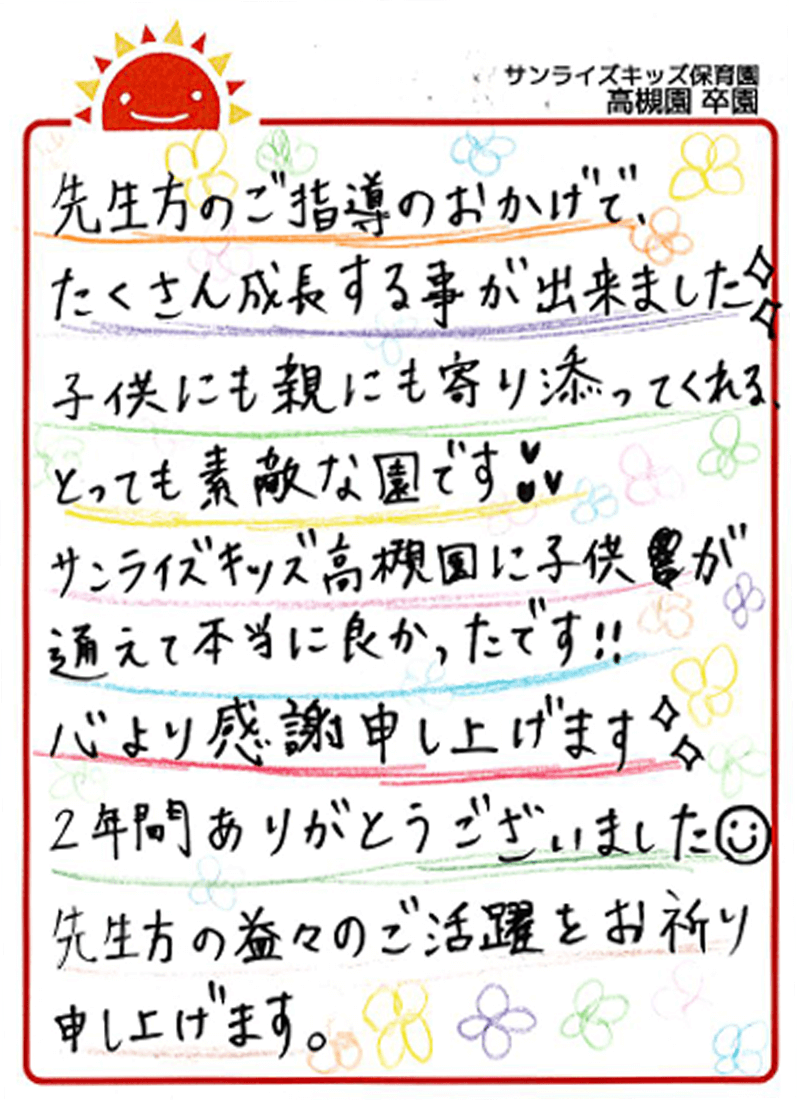 サンライズキッズ保育園
高槻園 卒園
先生方のご指導のおかげで、
たくさん成長する事が出来ました
子供にも親にも寄り添ってくれる、
とっても素敵な園です
サンライズキッズ高槻園に子供が
通えて本当に良かったです!!
心より感謝申し上げます
2年間ありがとうございました
先生方の益々のご活躍をお祈り
申し上げます。